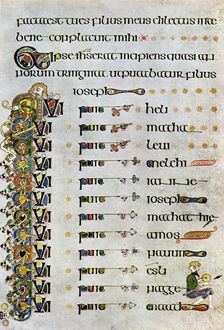 facta est tu es filius meus dilectus in te
bene conplacuit mihi
Et ipse ihs erat incipiens quasi an
norum triginta ut putabatur filius
ioseph
QUI fuit heli
QUI fuit mathat
QUI fuit leui
QUI fuit melchi
QUI fuit
QUI fuit ioseph
QUI fuit mathathie
QUI fuit amos
QUI fuit nauum
QUI fuit esli
QUI fuit nagge
QUI fuit maath